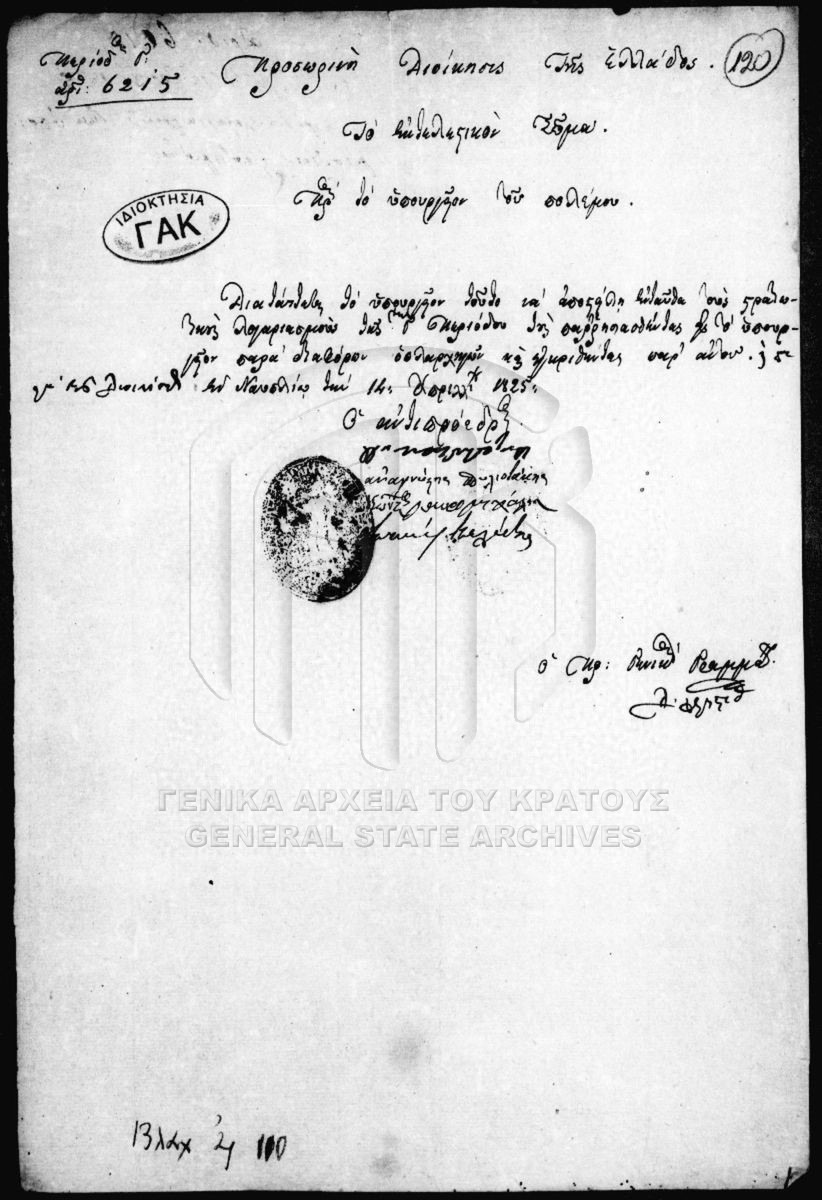 Περίοδ. Γ΄.
ἀρι: 6215
Προσωρινὴ Διοίκησις τῆς Ἑλλάδος.
120
Τὸ Ἐκτελεστικὸν Σῶμα.
Πρὸς τὸ ὑπουργεῖον τοῦ πολέμου.
ΙΔΙΟΚΤΗΣΙΑ
ΓΑΚ
Διατάττεται τὸ ὑπουργεῖον τοῦτο νὰ ἀποστείλῃ ἐνταῦθα τοὺς στρατιω-
τικοὺς λογαριασμοὺς τῆς Γ΄ Περιόδου τοὺς παρρησιασθέντας εἰς τὸ ὑπουρ-
γεῖον παρὰ διαφόρων ὁπλαρχηγῶν καὶ ἐγκριθέντας παρ' αὐτοῦ.
Ἐν Ναυπλίῳ τὴν 14 Ἀπριλλ. 1825.
Ὁ ἀντιπρόεδρος
ἀναγνώστης σπηλιοτάκης
Ὁ Πρ: Γενικ. Γραμμα.
ΓΕΝΙΚΑ ΑΡΧΕΙΑ ΤΟΥ ΚΡΑΤΟΥΣ
GENERAL STATE ARCHIVES
110